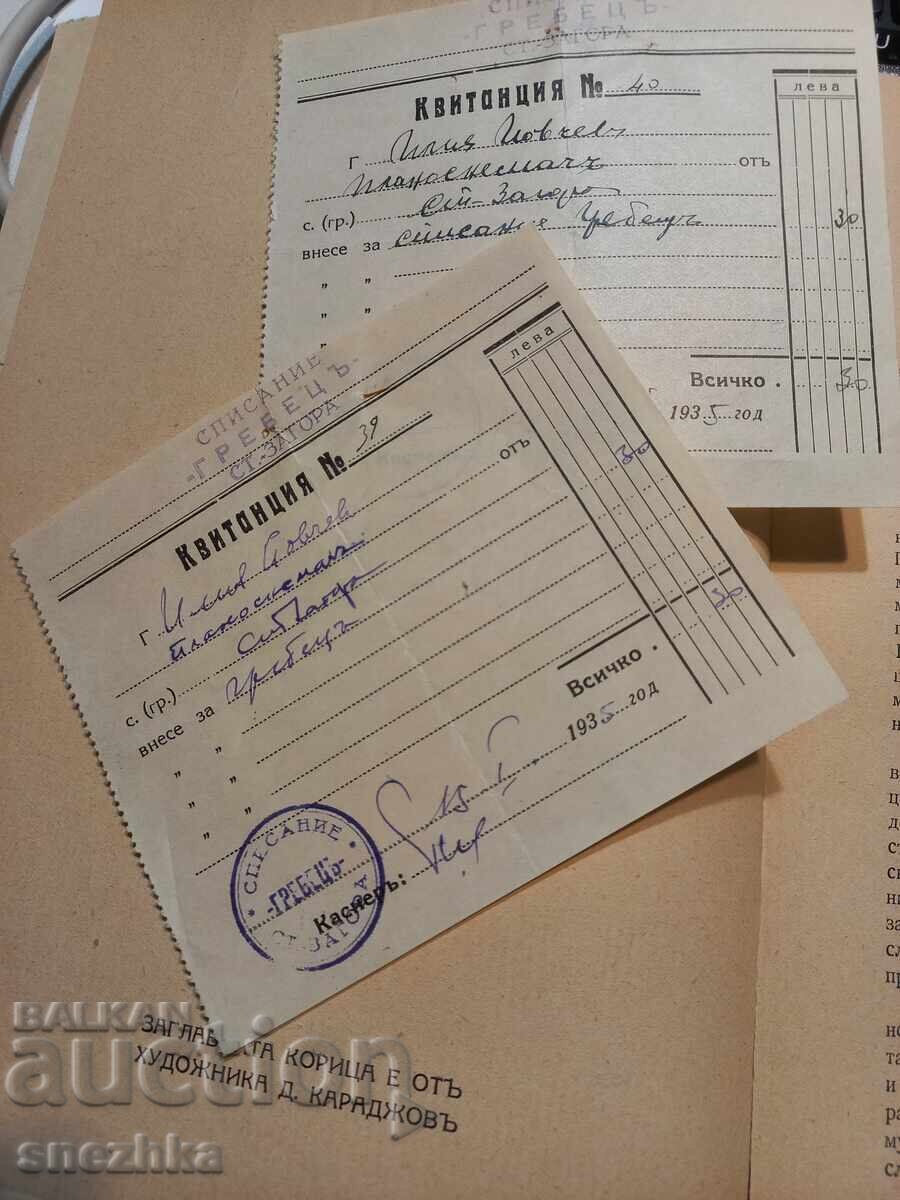 СПИСАНИЕ
-ГРЕБЕЦЪ-
СТ.-ЗАГОРА
Квитанция № 40
лева
Г Илия Йовчевъ
Планоснемачъ отъ
с. (гр.) Ст-Загора
внесе за списание Гребецъ 30
„ „
„ „
„
Всичко . 30
1935 год
СПИСАНИЕ
-ГРЕБЕЦЪ-
СТ.-ЗАГОРА
Квитанция № 39
лева
Г Илия Йовчев
Планоснемачъ отъ
с. (гр.) Ст Загора
внесе за Гребецъ 30
„ „
„ „
„ „
Всичко . 30
1935 год
Касиеръ:
* СПИСАНИЕ *
-ГРЕБЕЦЪ-
ЗАГОРА
ЗАГЛАВНАТА КОРИЦА Е ОТЪ
ХУДОЖНИКА Д. КАРАДЖОВЪ
BALKAN
auction
snezhka